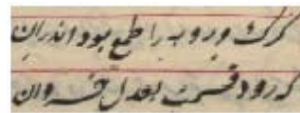 گرگ و روبه را طمع بود اندر آن
که رود قسمت بعدل خسروان